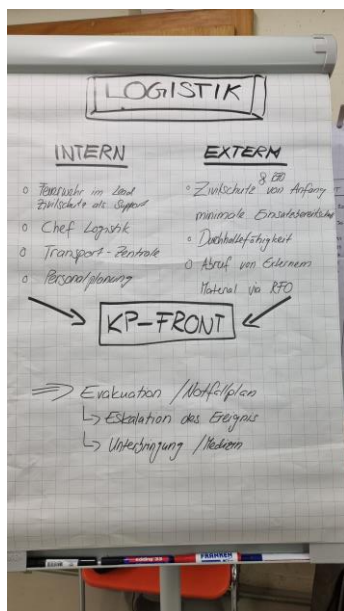 LOGISTIK
INTERN
EXTERM
o Feuerwehr im Lead
Zivilschutz als Support
o Chef Logistik
o Transport-Zentrale
o Personalplanung
o Zivilschutz von Anfang
minimale Einsatzbereitschaft
o Durchhaltefähigkeit
o Abruf von Externem
Material via RFO
KP-FRONT
⇒ Evakuation / Notfallplan
↳ Eskalation des Ereignis
↳ Unterbringung / Medizin
FRANKEN